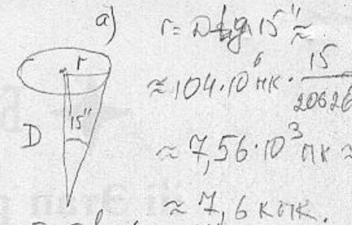 а)
r = D tg 15" ≈
≈ 104·10⁶ пк · 15 / 20626
≈ 7,56·10³ пк ≈
≈ 7,6 кпк.
r
15"
D